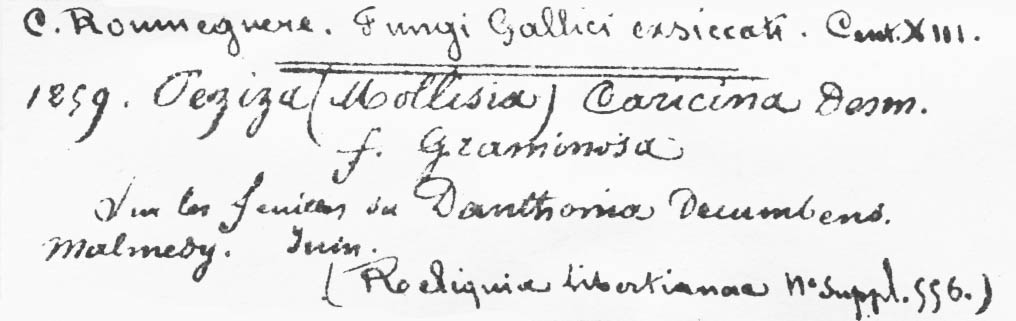 C. Roumeguere. Fungi Gallici exsiccati. Cent. XIII.
1259. Peziza (Mollisia) Caricina Desm.
f. Graminosa
Sur les feuilles du Danthonia Decumbens.
Malmedy. Juin.
(Roeliquia Libertianae No Suppl. 556.)